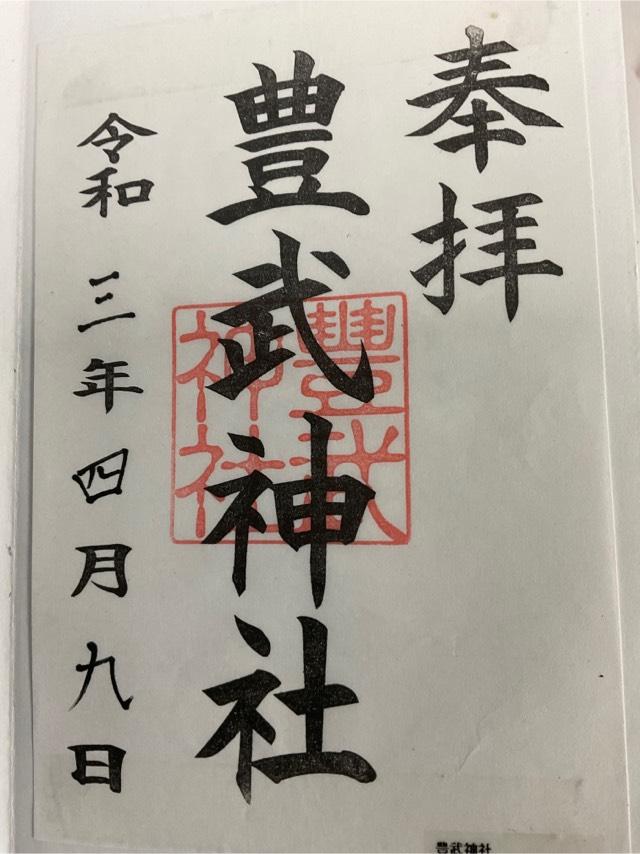 奉拝
豊武神社
豐武
神社
令和三年四月九日
豊武神社